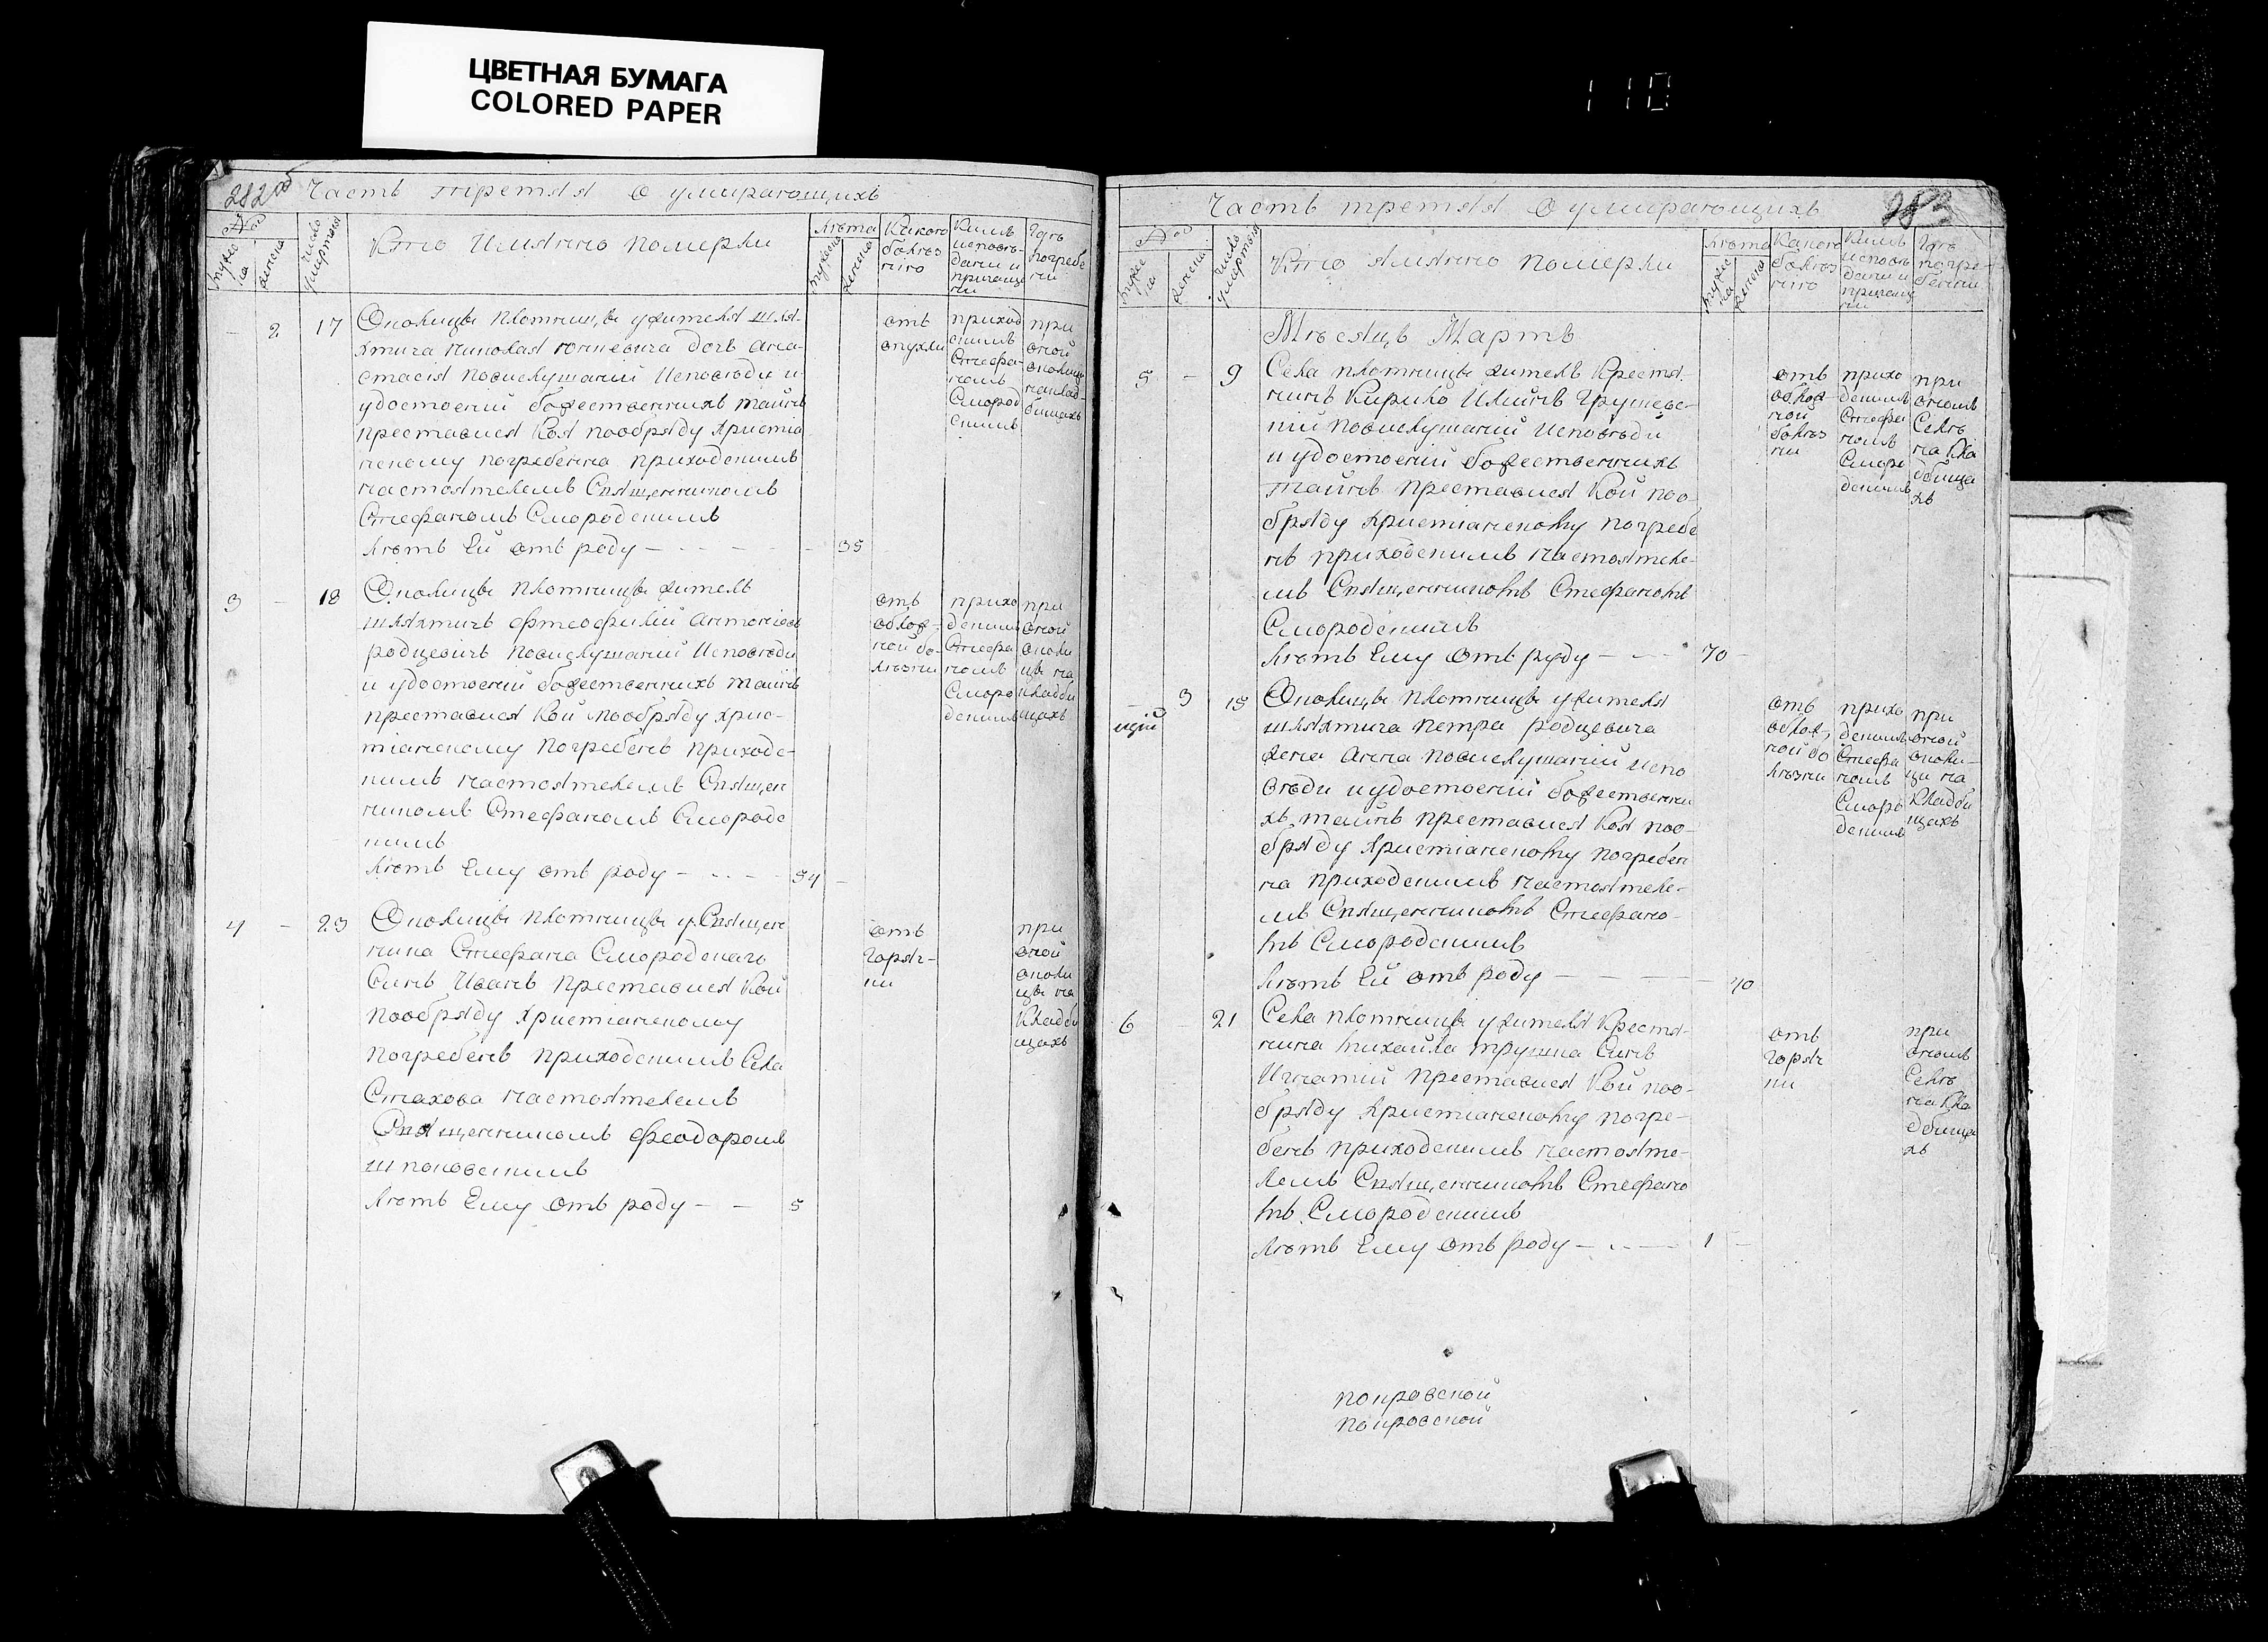 ЦВЕТНАЯ БУМАГА
COLORED PAPER
110
282об
Часть третяя О умирающихъ
Кто Имянно померли
Лѣта
Какою болѣзнію
Кимъ исповѣданы и причащены
Гдѣ погребены
2 17 Околицы Плотницы у жителя шля-
хтича Николая Юшкевича дочь Ана-
стасія повислушаній Исповѣди и
удостоеній божественнихъ таинъ
преставися Коя пообряду христіа
нскому погребенна приходскимъ
настоятелемъ Священникомъ
Стефаномъ Смородскимъ
Лѣтъ Ей отъ роду 35
отъ опухли
приходскимъ Стефаномъ Смородскимъ
при оной околицѣ на кладбищахъ
3 - 18 Околицы Плотницы житель
шляхтичъ Фтеофилій Антоніевъ
родцевичъ повислушаній Исповѣди
и удостоеній божественнихъ таинъ
преставися Кой пообряду хрис-
тіанскому погребенъ приходс-
кимъ настоятелемъ Священ
никомъ Стефаномъ Смородс
кимъ
Лѣтъ Ему отъ роду - 54 -
отъ облож-
ной бо-
лѣзни
прихо
дскимъ
Стефа
номъ
Смородскимъ
при
оной
околи
цы на
кладби
щахъ
4 - 23 Околицы Плотницы у Священ
ника Стефана Смородскаго
Синъ Иванъ преставися Кой
пообряду христіанскому
погребенъ приходскимъ Села
Стахова настоятелемъ
Священникомъ Феодоромъ
шпаковскимъ
Лѣтъ Ему отъ роду - - 5
отъ
горяч-
ки
при
оной
околи
цы на
Кладби
щахъ
283
Часть третяя О умирающихъ
Кто Имянно померли
Лѣта
Какою болѣзнію
Кимъ исповѣданы и причащены
Гдѣ погребены
Мѣсяцъ Мартъ
5 - 9 Села плотницы житель Крестя-
нинъ Кирило Иличъ Грушевс-
кій повислушаній Исповѣди
и удостоеній божественнихъ
таинъ преставися Кой поо
бряду христіанскому погребе
нъ приходскимъ настояте-
мъ Священникомъ Стефаномъ
Смородскимъ
Лѣтъ Ему отъ роду - 70 -
отъ
облож-
ной
болѣз
ни
прихо
дскимъ
Стефа
номъ
Смородскимъ
при
ономъ
Селѣ
на Кла
дбища
хъ
- 3 15 Околицы плотницы у жителя
шляхтича Петра родцевича
жена Анна повислушаній Испо
вѣди и удостоеній божественни
хъ таинъ преставися Коя поо-
бряду христіанскому погребен
на приходскимъ настояте-
мъ Священникомъ Стефано-
мъ Смородскимъ
Лѣтъ Ей отъ роду - 40
отъ
облож-
ной бо
лѣзни
прихо
дскимъ
Стефа
номъ
Смородскимъ
при
оной
околи-
цы на
кладби
щахъ
6 21 Села плотницы у жителя Крестя-
нина михайла трушша Синъ
Игнатій преставися Кой поо-
бряду христіанскому погре-
бенъ приходскимъ настояте-
лемъ Священникомъ Стефано
мъ Смородскимъ
Лѣтъ Ему отъ роду - 1 -
отъ
горяч
ки
при
ономъ
Селѣ
на Кла
дбища
хъ
покровской
покровской